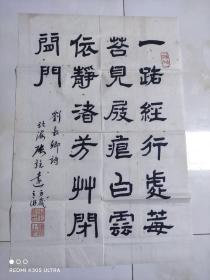 一路經行處莓
苔見屐痕白雲
依靜渚芳艸閉
閒門
劉長卿詩